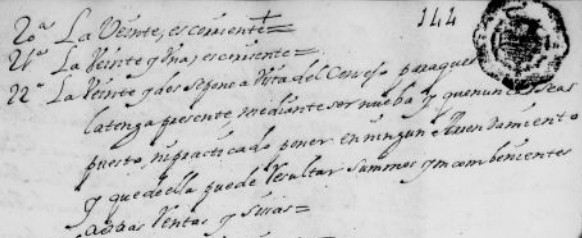 144
20ª La Veinte, es corriente =
21ª La Veinte y Una, es corriente =
22ª La Veinte y dos se pone a Vista del Consejo paraque
la tenga presente, mediante ser nueba y que nunca se as
puesto, ni practicado poner en ningun Arrendamiento
y que de ella puede Resultar summos ynconbenientes
a Ventas y sisas =